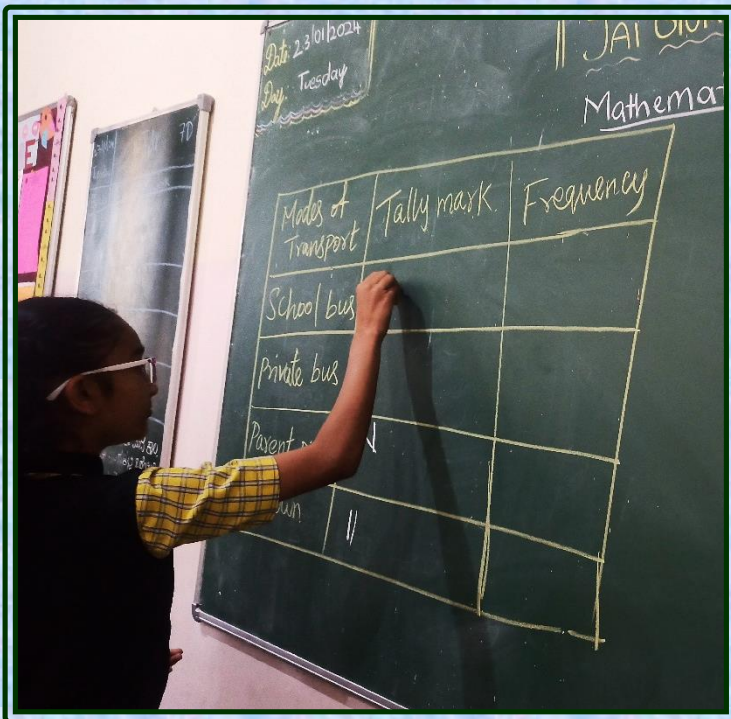 Date: 23/01/2024
Day: Tuesday
|| JAI
Mathema
Modes of Transport Tally mark. Frequency
School bus
Private bus
Parent
own ||
7D
E